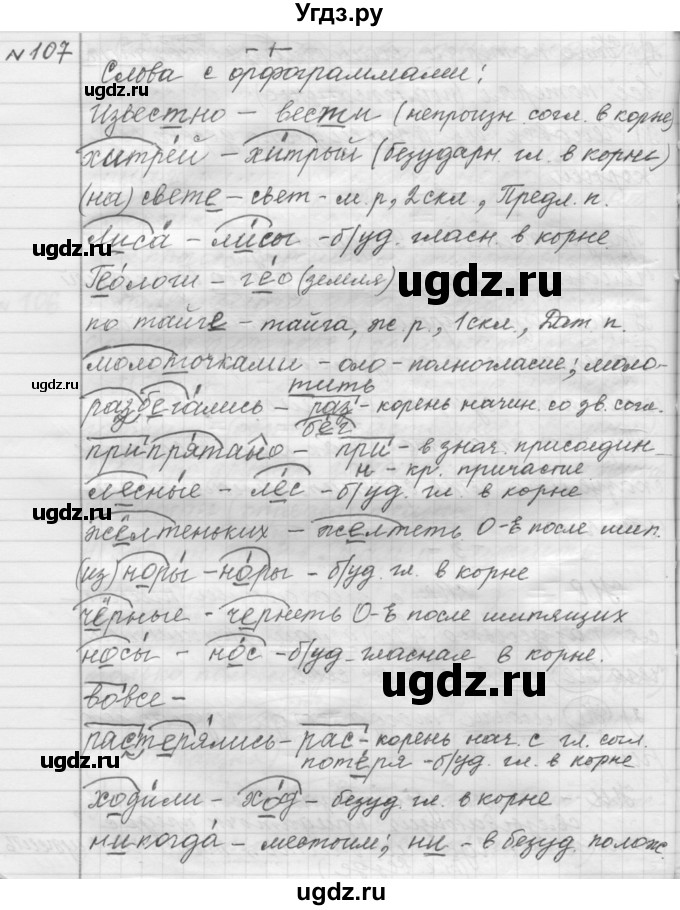 Угдз.ру
№107
Слова с орфограммами:
Известно – вести (непроизн согл. в корне)
хитрей – хитрый (безударн. гл. в корне)
(на) свете – свет – м.р., 2 скл., Предл. п.
лиса – лисы – б/уд. гласн. в корне
Геологи – гео (земля)
по тайге – тайга, ж.р., 1 скл., Дат п.
молоточками – оло – полногласие; моло-
тить
разбегались – раз – корень начин. со зв. согл.
бег
припрятано – при – в знач. присоедин
н – кр. причастие
лесные – лес – б/уд. гл. в корне
жёлтеньких – желтеть О-Ё после шип.
(из) норы – норы – б/уд. гл. в корне
чёрные – чернеть О-Ё после шипящих
носы – нос – б/уд. гласная в корне.
вовсе –
растерялись – рас – корень нач. с гл. согл.
потеря – б/уд. гл. в корне
ходили – ход – безуд. гл. в корне
никогда – местоим; ни – в безуд. полож.
ugdz.ru
ugdz.ru
ugdz.ru
ugdz.ru
ugdz.ru
ugdz.ru
ugdz.ru
ugdz.ru
ugdz.ru
ugdz.ru
ugdz.ru
ugdz.ru
ugdz.ru